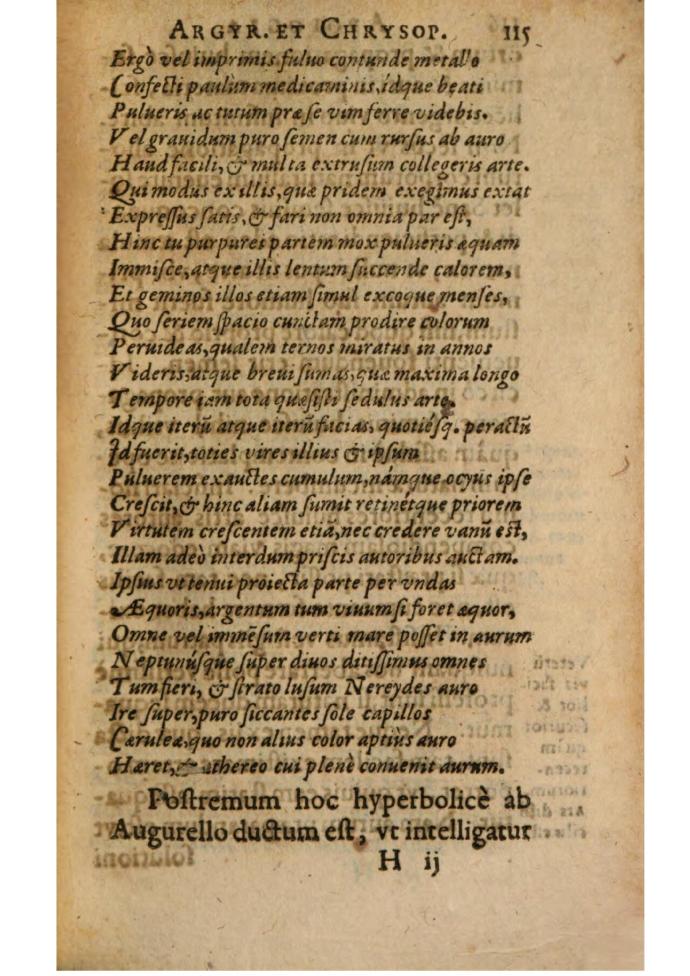 ARGYR. ET CHRYSOP. 115
Ergò vel imprimis fuluo contunde metallo
Confecti paulùm medicaminis, idque beati
Pulueris ac tutum præ se vim ferre videbis.
Vel grauidum puro semen cum rursus ab auro
Haud facili, & multa extrusum collegeris arte.
Qui modus ex illis, quæ pridem exegimus extat
Expressus satis, & fari non omnia par est,
Hinc tu purpurei partem mox pulueris æquam
Immisce, atque illis lentum succende calorem,
Et geminos illos etiam simul excoque menses,
Quo seriem spacio cunctam prodire colorum
Peruideas, qualem ternos miratus in annos
Videris, atque breui sumas, quæ maxima longo
Tempore iam tota quæsisti sedulus arte.
Idque iterũ atque iterũ facias, quotiésq. peractũ
Id fuerit, toties vires illius & ipsum
Puluerem exauctes cumulum, námque ocyùs ipse
Crescit, & hinc aliam sumit retinétque priorem
Virtutem crescentem etiã, nec credere vanũ est,
Illam adeò interdum priscis autoribus auctam.
Ipsius vt tenui proiecta parte per vndas
Æquoris, argentum tum viuum si foret æquor,
Omne vel immẽsum verti mare posset in aurum
Neptunúsque super diuos ditissimus omnes
Tum fieri, & strato lusum Nereydes auro
Ire super, puro siccantes sole capillos
Cæruleæ, quo non alius color aptiùs auro
Hæret, & æthereo cui plenè conuenit aurum.
Postremum hoc hyperbolicè ab
Augurello ductum est, vt intelligatur
H ij